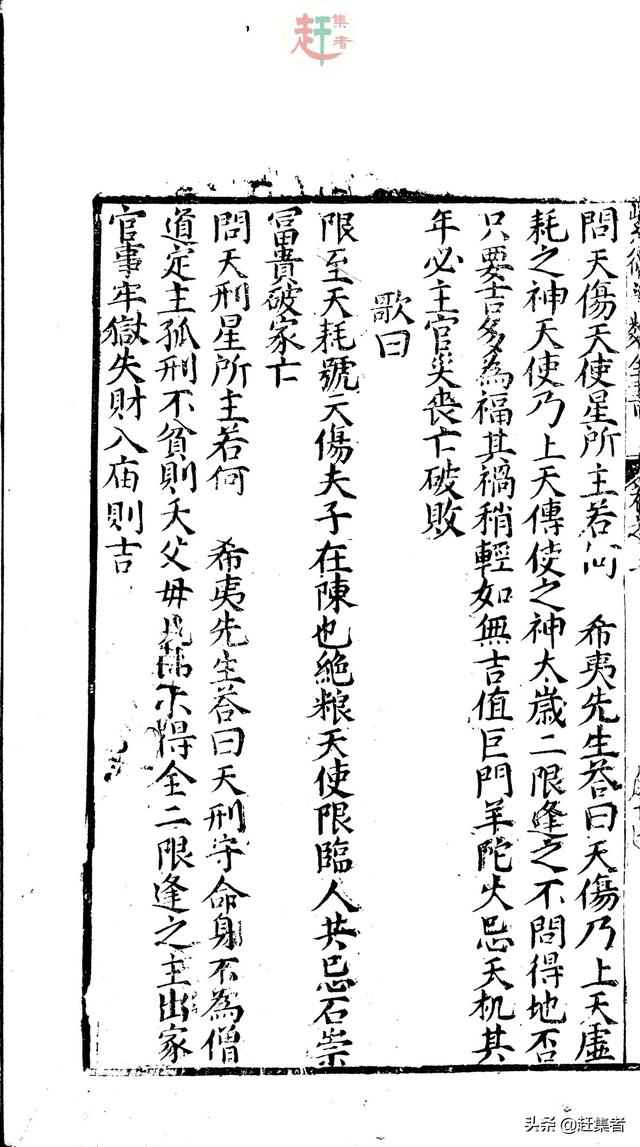 赶集者
問天傷天使星所主若何　希夷先生荅曰天傷乃上天虛
耗之神天使乃上天傳使之神太歲二限逢之不問得地否
只要吉多為福其禍稍輕如無吉值巨門羊陀火忌天机其
年必主官災喪亡破敗
歌曰
限至天耗號天傷夫子在陳也絕粮天使限臨人共忌石崇
冨貴破家亡
問天刑星所主若何　希夷先生荅曰天刑守命身不為僧
道定主孤刑不貧則夭父母兄弟不得全二限逢之主出家
官事牢獄失財入庙則吉
头条 @赶集者